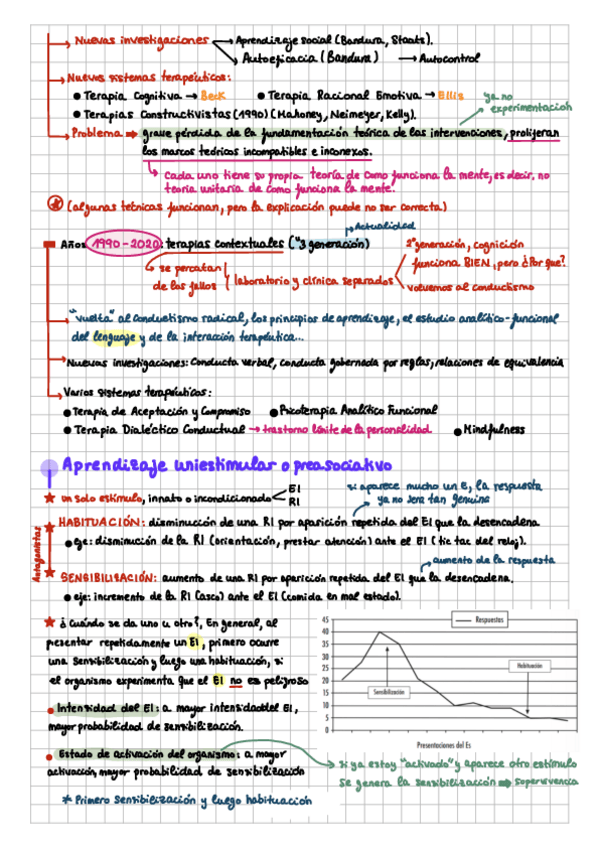 Nuevas investigaciones → Aprendizaje social (Bandura, Staats).
→ Autoeficacia (Bandura) → Autocontrol
Nuevos sistemas terapéuticos:
• Terapia Cognitiva → Beck • Terapia Racional Emotiva → Ellis
ya no experimentación
• Terapias Constructivistas (1990) (Mahoney, Neimeyer, Kelly).
Problema → grave pérdida de la fundamentación teórica de las intervenciones, proliferan
los marcos teóricos incompatibles e inconexos.
↳ Cada uno tiene su propia teoría de como funciona la mente, es decir, no
teoría unitaria de como funciona la mente.
(algunas técnicas funcionan, pero la explicación puede no ser correcta)
Actualidad
Años 1990-2020: terapias contextuales ("3 generación)
2ª generación, cognición
funciona BIEN, pero ¿Por que?
volvemos al conductismo
→ se percatan
de los fallos
laboratorio y clínica separados
"vuelta" al conductismo radical, los principios de aprendizaje, el estudio analítico-funcional
del lenguaje y de la interacción terapéutica...
Nuevas investigaciones: Conducta verbal, conducta gobernada por reglas, relaciones de equivalencia
Varios sistemas terapéuticos:
• Terapia de Aceptación y Compromiso • Psicoterapia Analítico Funcional
• Terapia Dialéctico Conductual → trastorno límite de la personalidad • Mindfulness
Aprendizaje uniestimular o preasociativo
★ un solo estímulo, innato o incondicionado
EI
RI
si aparece mucho un E, la respuesta
ya no será tan genuina
Antagonistas
★ HABITUACIÓN: disminución de una RI por aparición repetida del EI que la desencadena.
• eje: disminución de la RI (orientación, prestar atención) ante el EI (tic tac del reloj).
aumento de la respuesta
★ SENSIBILIZACIÓN: aumento de una RI por aparición repetida del EI que la desencadena.
• eje: incremento de la RI (asco) ante el EI (comida en mal estado).
★ ¿Cuándo se da uno u otro?, En general, al
presentar repetidamente un EI, primero ocurre
una sensibilización y luego una habituación, si
el organismo experimenta que el EI no es peligroso
• Intensidad del EI: a mayor intensidad del EI,
mayor probabilidad de sensibilización.
• Estado de activación del organismo: a mayor
activación, mayor probabilidad de sensibilización
* Primero sensibilización y luego habituación
Respuestas
45
40
35
30
25
20
15
10
5
0
Sensibilización
Habituación
Presentaciones del Es
→ si ya estoy "activado" y aparece otro estímulo
se genera la sensibilización ➡ supervivencia